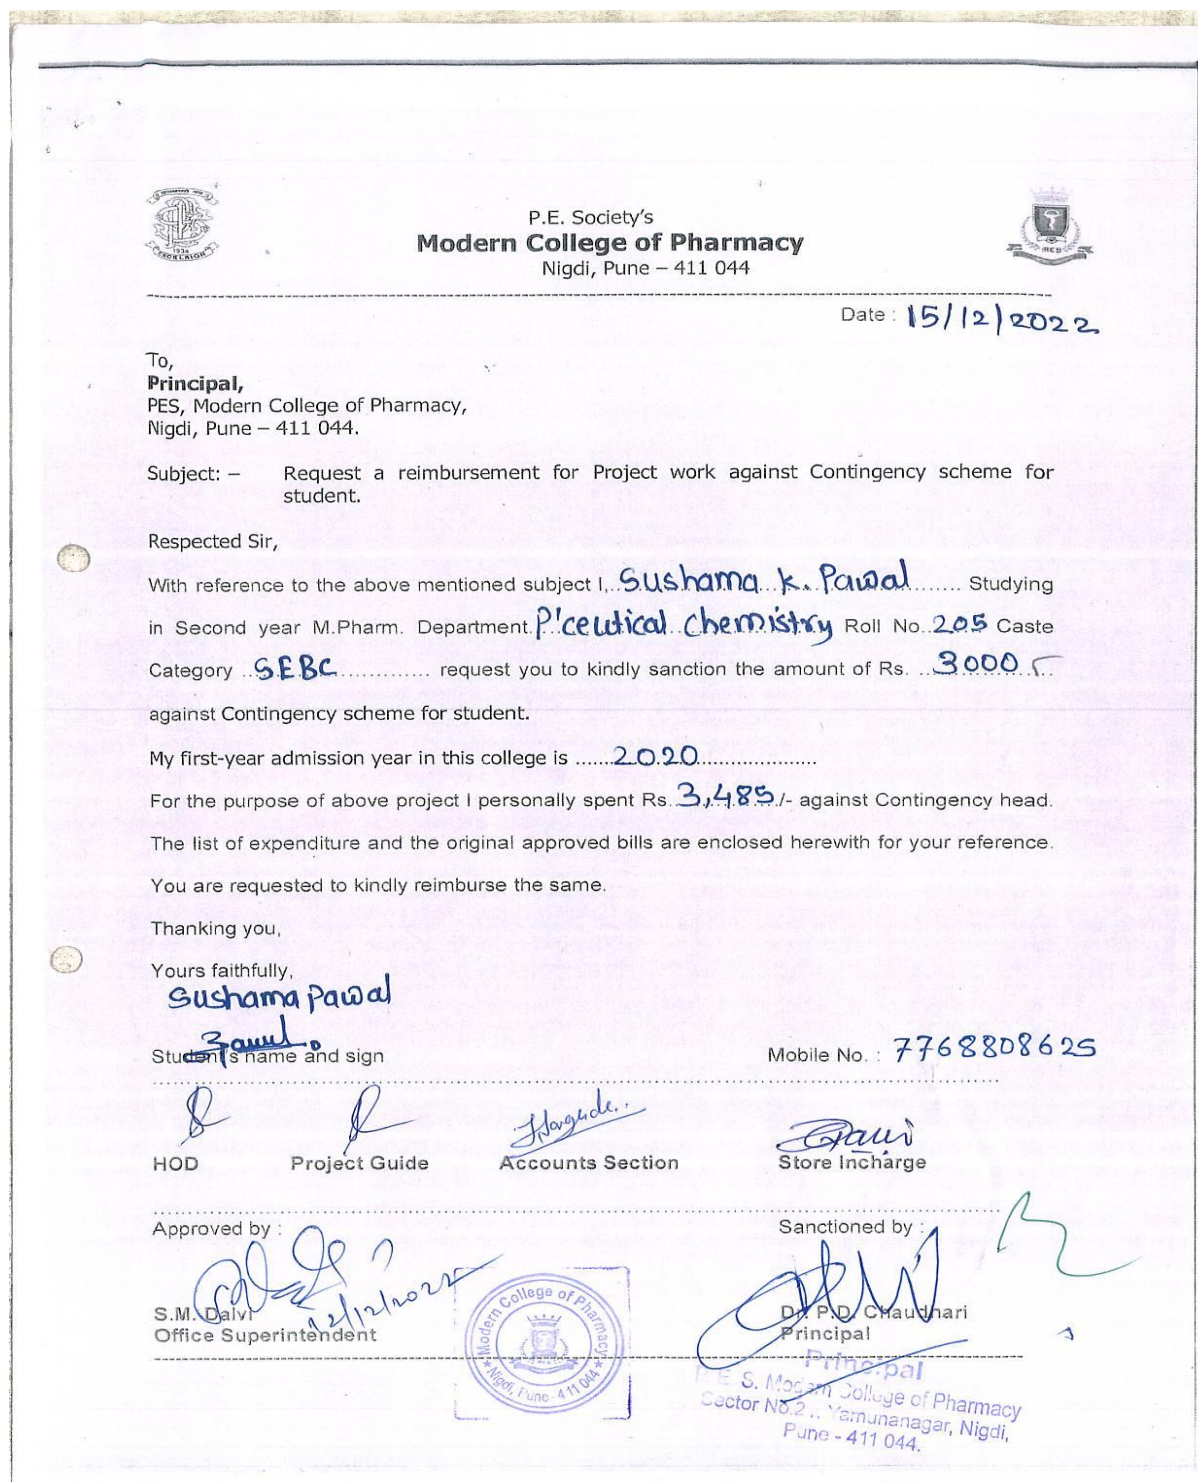 P.E. Society's
Modern College of Pharmacy
Nigdi, Pune – 411 044
1934
EXCELSIOR
Date : 15/12/2022
To,
Principal,
PES, Modern College of Pharmacy,
Nigdi, Pune – 411 044.
Subject: – Request a reimbursement for Project work against Contingency scheme for
student.
Respected Sir,
With reference to the above mentioned subject I, Sushama K. Pawal ........ Studying
in Second year M.Pharm. Department P'ceutical Chemistry Roll No. 205 Caste
Category ..SEBC.............. request you to kindly sanction the amount of Rs. ..3000
against Contingency scheme for student.
My first-year admission year in this college is .......2020....................
For the purpose of above project I personally spent Rs. 3,485/- against Contingency head.
The list of expenditure and the original approved bills are enclosed herewith for your reference.
You are requested to kindly reimburse the same.
Thanking you,
Yours faithfully,
Sushama Pawal
Student's name and sign Mobile No. : 7768808625
HOD Project Guide Accounts Section Store Incharge
Approved by : Sanctioned by :
12/12/2022
S.M. Dalvi Dr. P.D. Chaudhari
Office Superintendent Principal
Modern College of Pharmacy
Nigdi, Pune - 411 044
Principal
P. E. S. Modern College of Pharmacy
Sector No.2 .. Yamunanagar, Nigdi,
Pune - 411 044.